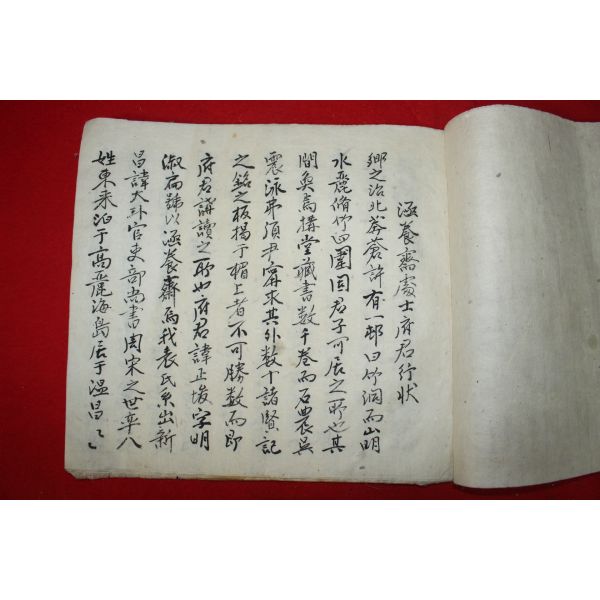 涵養齋處士府君行狀
鄉之治北莽蒼許有一邨曰竹洞而山明
水麗脩竹四圍固君子可居之所也其
間奐焉構堂藏書数千卷而石農吳
震泳弗須尹甯求其外数十諸賢記
之銘之板揭于楣上者不可勝数而即
府君講讀之所也府君諱正埈字明
淑扁號以涵養齋焉我表氏系出新
昌諱大卦官吏部尚書周宋之世率八
姓東來泊于高麗海島居于溫昌